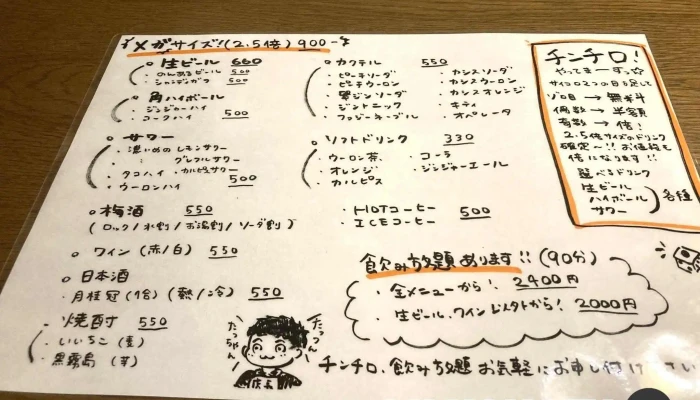 メガサイズ!(2.5倍) 900-
○ 生ビール 660
・のんあるビール 500
・シャンディガフ 500
○ 角ハイボール
・ジンジャーハイ
・コークハイ 500
○ サワー
・濃いめの レモンサワー
・ 〃 グレフルサワー
・タコハイ ・カルピスサワー
・ウーロンハイ 500
○ 梅酒 550
(ロック/水割/お湯割/ソーダ割)
○ ワイン (赤/白) 550
○ 日本酒
・月桂冠 (1合) (熱/冷) 550
○ 焼酎 550
・いいちこ (麦)
・黒霧島 (芋)
○ カクテル 550
・ピーチソーダ
・ピーチウーロン
・ジンソーダ
・ジントニック
・ファジーネーブル
・カシスソーダ
・カシスウーロン
・カシスオレンジ
・キティ
・オペレータ
○ ソフトドリンク 330
・ウーロン茶、
・オレンジ
・カルピス
・コーラ
・ジンジャーエール
・HOTコーヒー
・ICEコーヒー 500
飲み放題あります!! (90分)
・全メニューから!、2400円
・生ビール、ワイン以外から! 2000円
チンチロ!
やってまーすっ☆
サイコロ2つの目を足して
ゾロ目 → 無料
偶数 → 半額
奇数 → 倍!
2.5倍サイズのドリンク
確定~!! お値段も
倍になります!!
選べるドリンク
生ビール
ハイボール
サワー
各種
たっちゃん
たっつん
店長
チンチロ、飲み放題 お気軽にお申し付け下さい